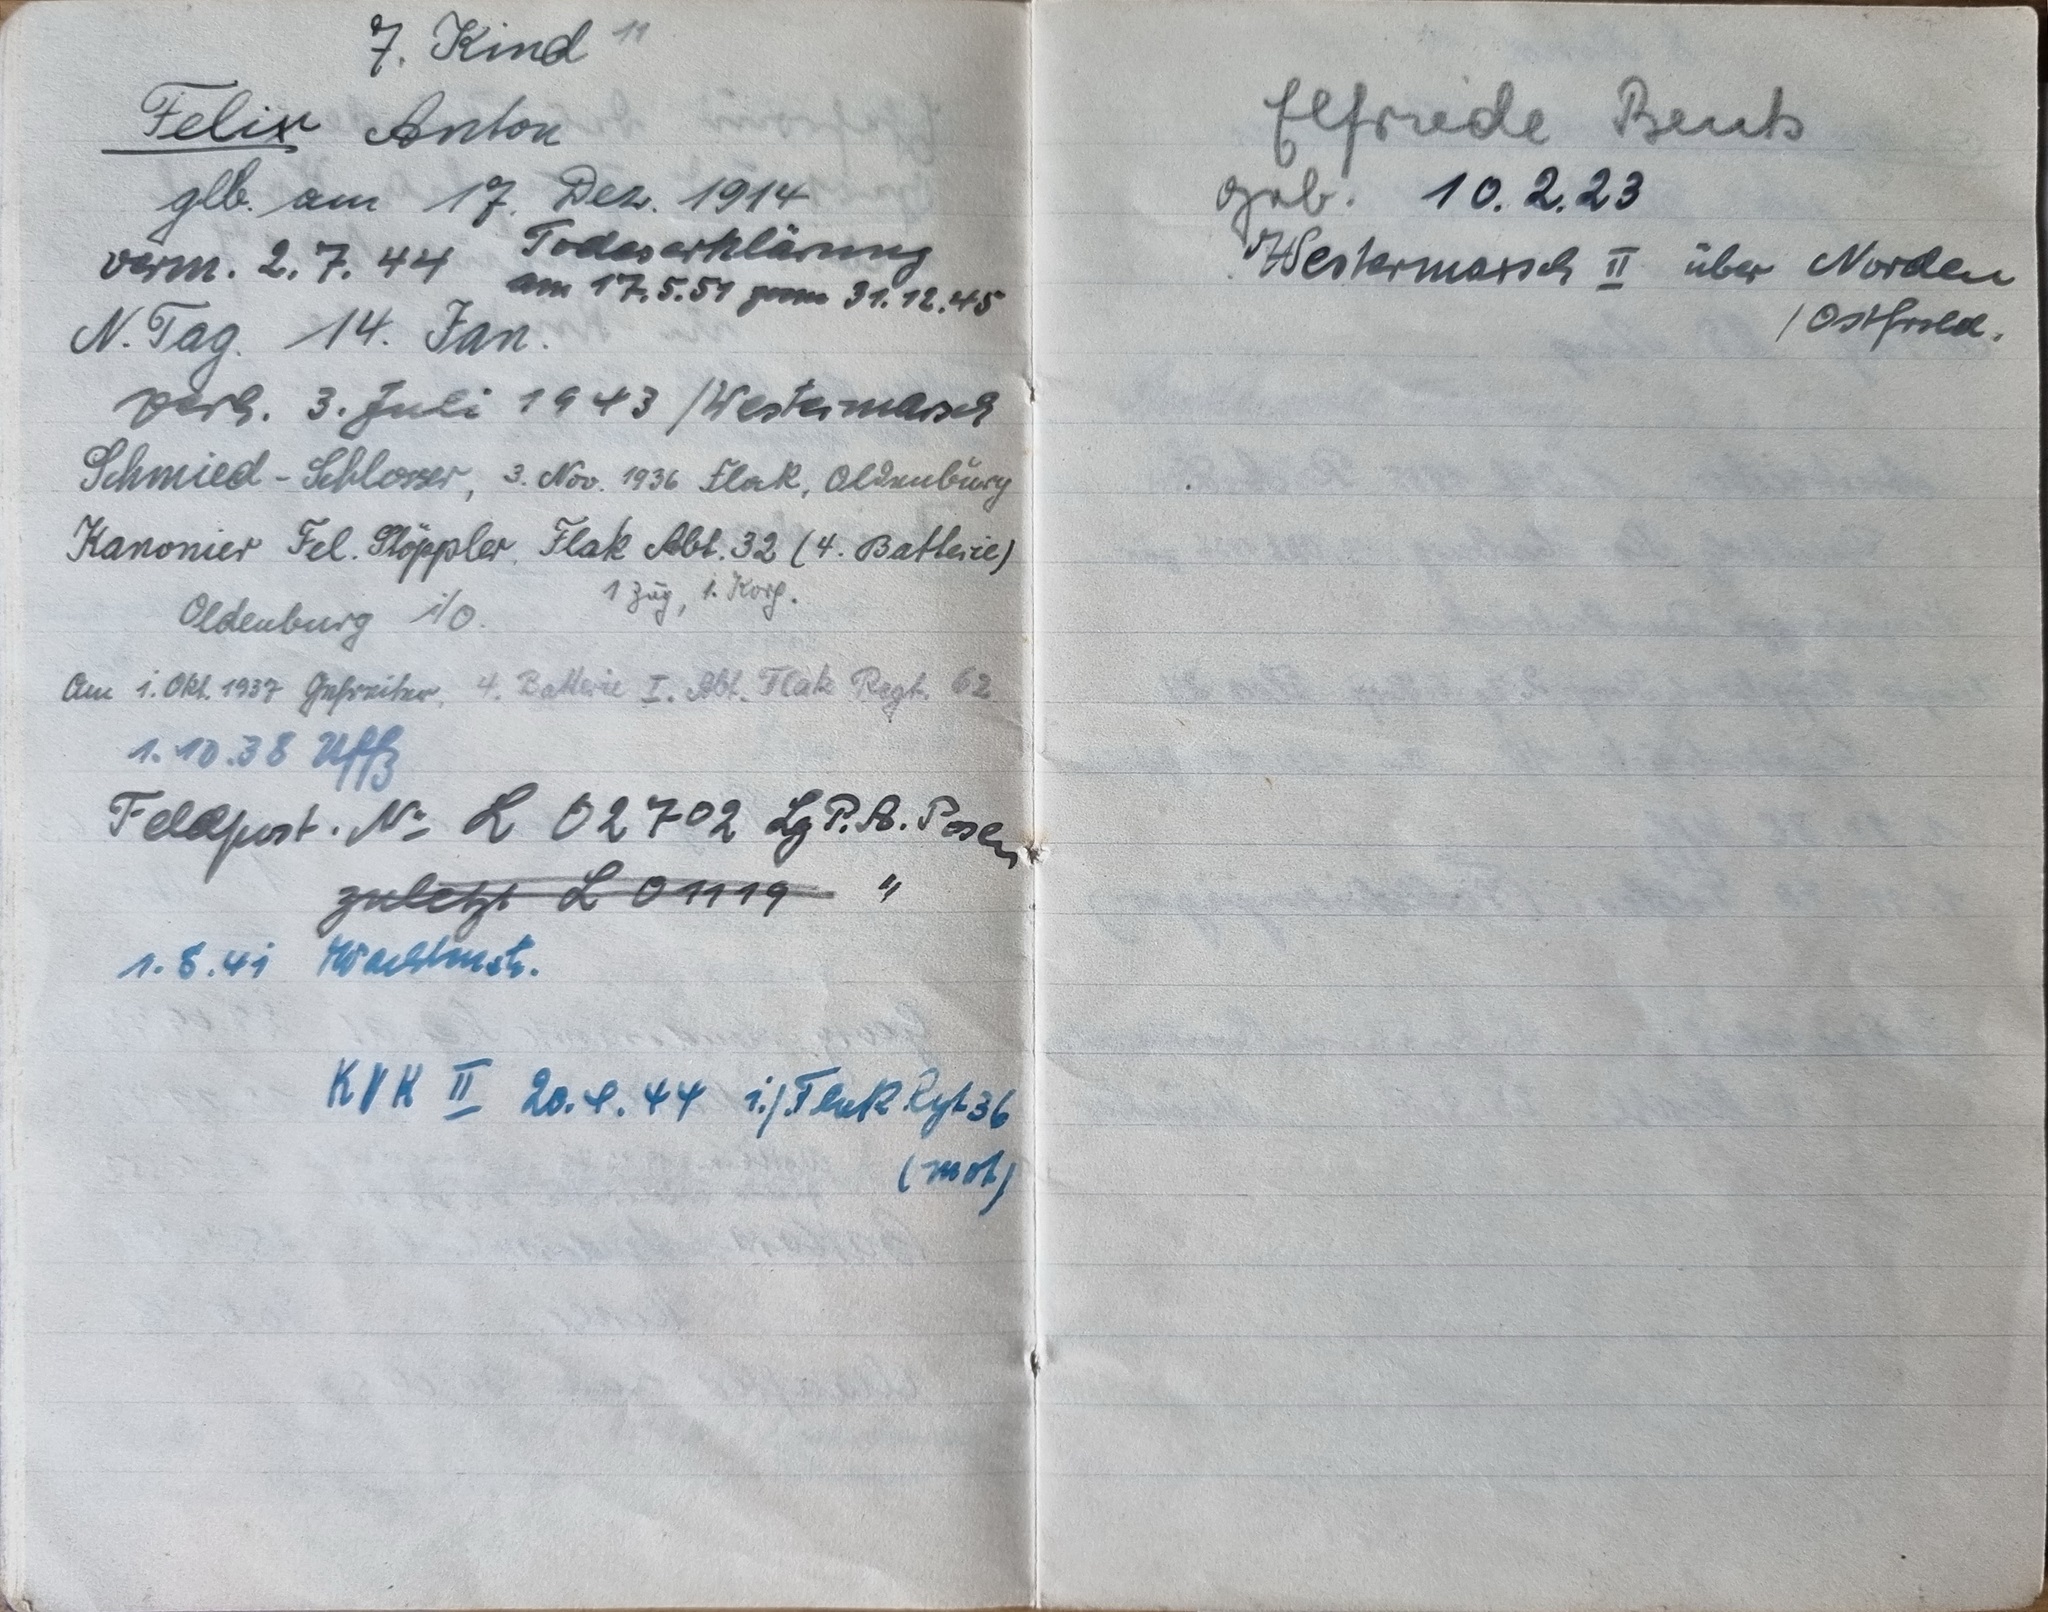 7. Kind 11
Felix Anton
geb. am 17. Dez. 1914
verm. 2.7.44 Todeserklärung
am 17.5.51 zum 31.12.45
N. Tag. 14. Jan.
verh. 3. Juli 1943 /Westermarsch
Schmied-Schlosser, 3. Nov. 1936 Flak, Oldenburg
Kanonier Fel. Stöppler. Flak Abt. 32 (4. Batterie)
Oldenburg i/O. 1 Zug, 1. Korp.
Am 1. Okt. 1937 Gefreiter, 4. Batterie I. Abt. Flak Regt. 62
1.10.38 Uffz
Feldpost. No L 02702 Lg P.A. Posen
zuletzt L 01119 "
1.8.41 Wachtmstr.
KVK II 20.4.44 i./Flak Rgt 36
(mot)
Elfriede
geb. 10.2.23
Westermarsch II über Norden
/Ostfrsld.